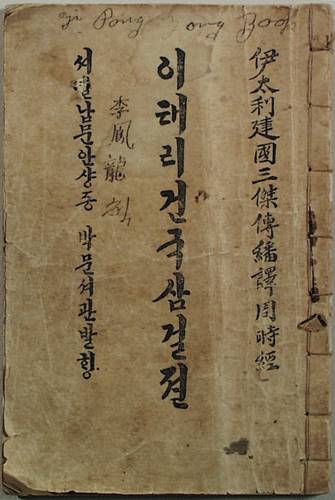 Pong Yong Book
伊太利建國三傑傳繙譯周時經
이태리건국삼걸젼
李鳳龍
서울남문안샹동 박문셔관발힝